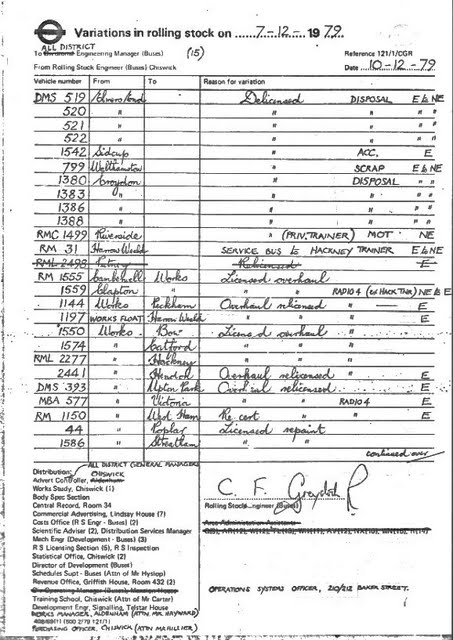 Variations in rolling stock on 7-12-1979
ALL DISTRICT
To Divisional Engineering Manager (Buses) (15) Reference 121/1/CGR
From Rolling Stock Engineer (Buses) Chiswick Date 10-12-79
Vehicle number From To Reason for variation
DMS 519 Elmers End Delicensed DISPOSAL E & NE
520 " " " " "
521 " " " " "
522 " " " " "
1542 Sidcup " ACC. E
799 Walthamstow " SCRAP E & NE
1380 Croydon " DISPOSAL " "
1383 " " " " "
1386 " " " " "
1388 " " " " "
RMC 1499 Riverside " (PRIV. TRAINER) MOT NE
RM 31 Harrow Weald SERVICE BUS to HACKNEY TRAINER E & NE
RML 2498 Putney Relicensed E
RM 1555 Camberwell Works Licensed overhaul
1559 Clapton " " " RADIO 4 (ex HACK TNR) NE & E
1144 Works Peckham Overhaul relicensed " E
1197 WORKS FLOAT Harrow Weald " " E
1550 Works Bow Licensed overhaul
1574 " Catford " "
RML 2277 " Hackney " "
2441 " Hendon Overhaul relicensed " E
DMS 393 " Upton Park Overhaul relicensed E
MBA 577 " Victoria " " RADIO 4 E
RM 1150 " West Ham Re cert " E
44 " Poplar Licensed repaint
1586 " Streatham " "
continued over
ALL DISTRICT GENERAL MANAGERS
Distribution: CHISWICK
Advert Controller, Aldenham
Works Study, Chiswick (1)
Body Spec Section
Central Record, Room 34
Commercial Advertising, Lindsay House (7)
Costs Office (R S Engr - Buses) (2)
Scientific Adviser (2), Distribution Services Manager
Mech Engr (Development - Buses) (3)
R S Licensing Section (5), R S Inspection
Statistical Office, Chiswick (2)
Director of Development (Buses)
Schedules Supt - Buses (Attn of Mr Hyslop)
Revenue Office, Griffith House, Room 432 (2)
Training School, Chiswick (Attn of Mr Carter)
Development Engr, Signalling, Telstar House
WORKS MANAGER, ALDENHAM (ATTN. MR. HAYWARD)
PURCHASING OFFICER, CHISWICK (ATTN MR HILLIER)
C. F.
Rolling Stock Engineer (Buses)
Area Administration Assistants
OPERATIONS SYSTEMS OFFICER, 210/212 BAKER STREET.